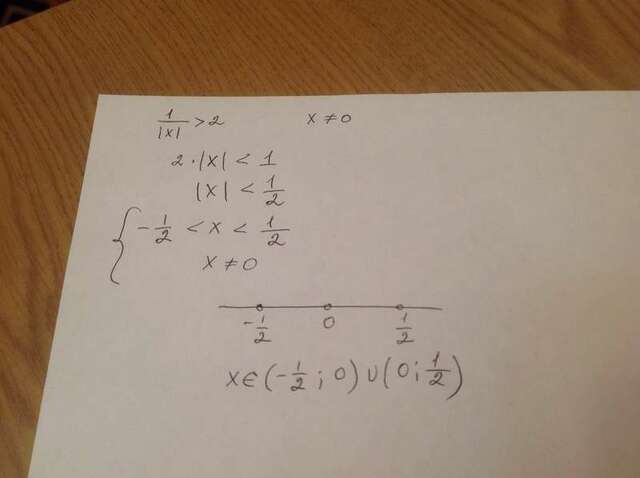 1/|x| > 2   x ≠ 0
2·|x| < 1
|x| < 1/2
{ -1/2 < x < 1/2
x ≠ 0
-1/2   0   1/2
x ∈ (-1/2 ; 0) ∪ (0 ; 1/2)